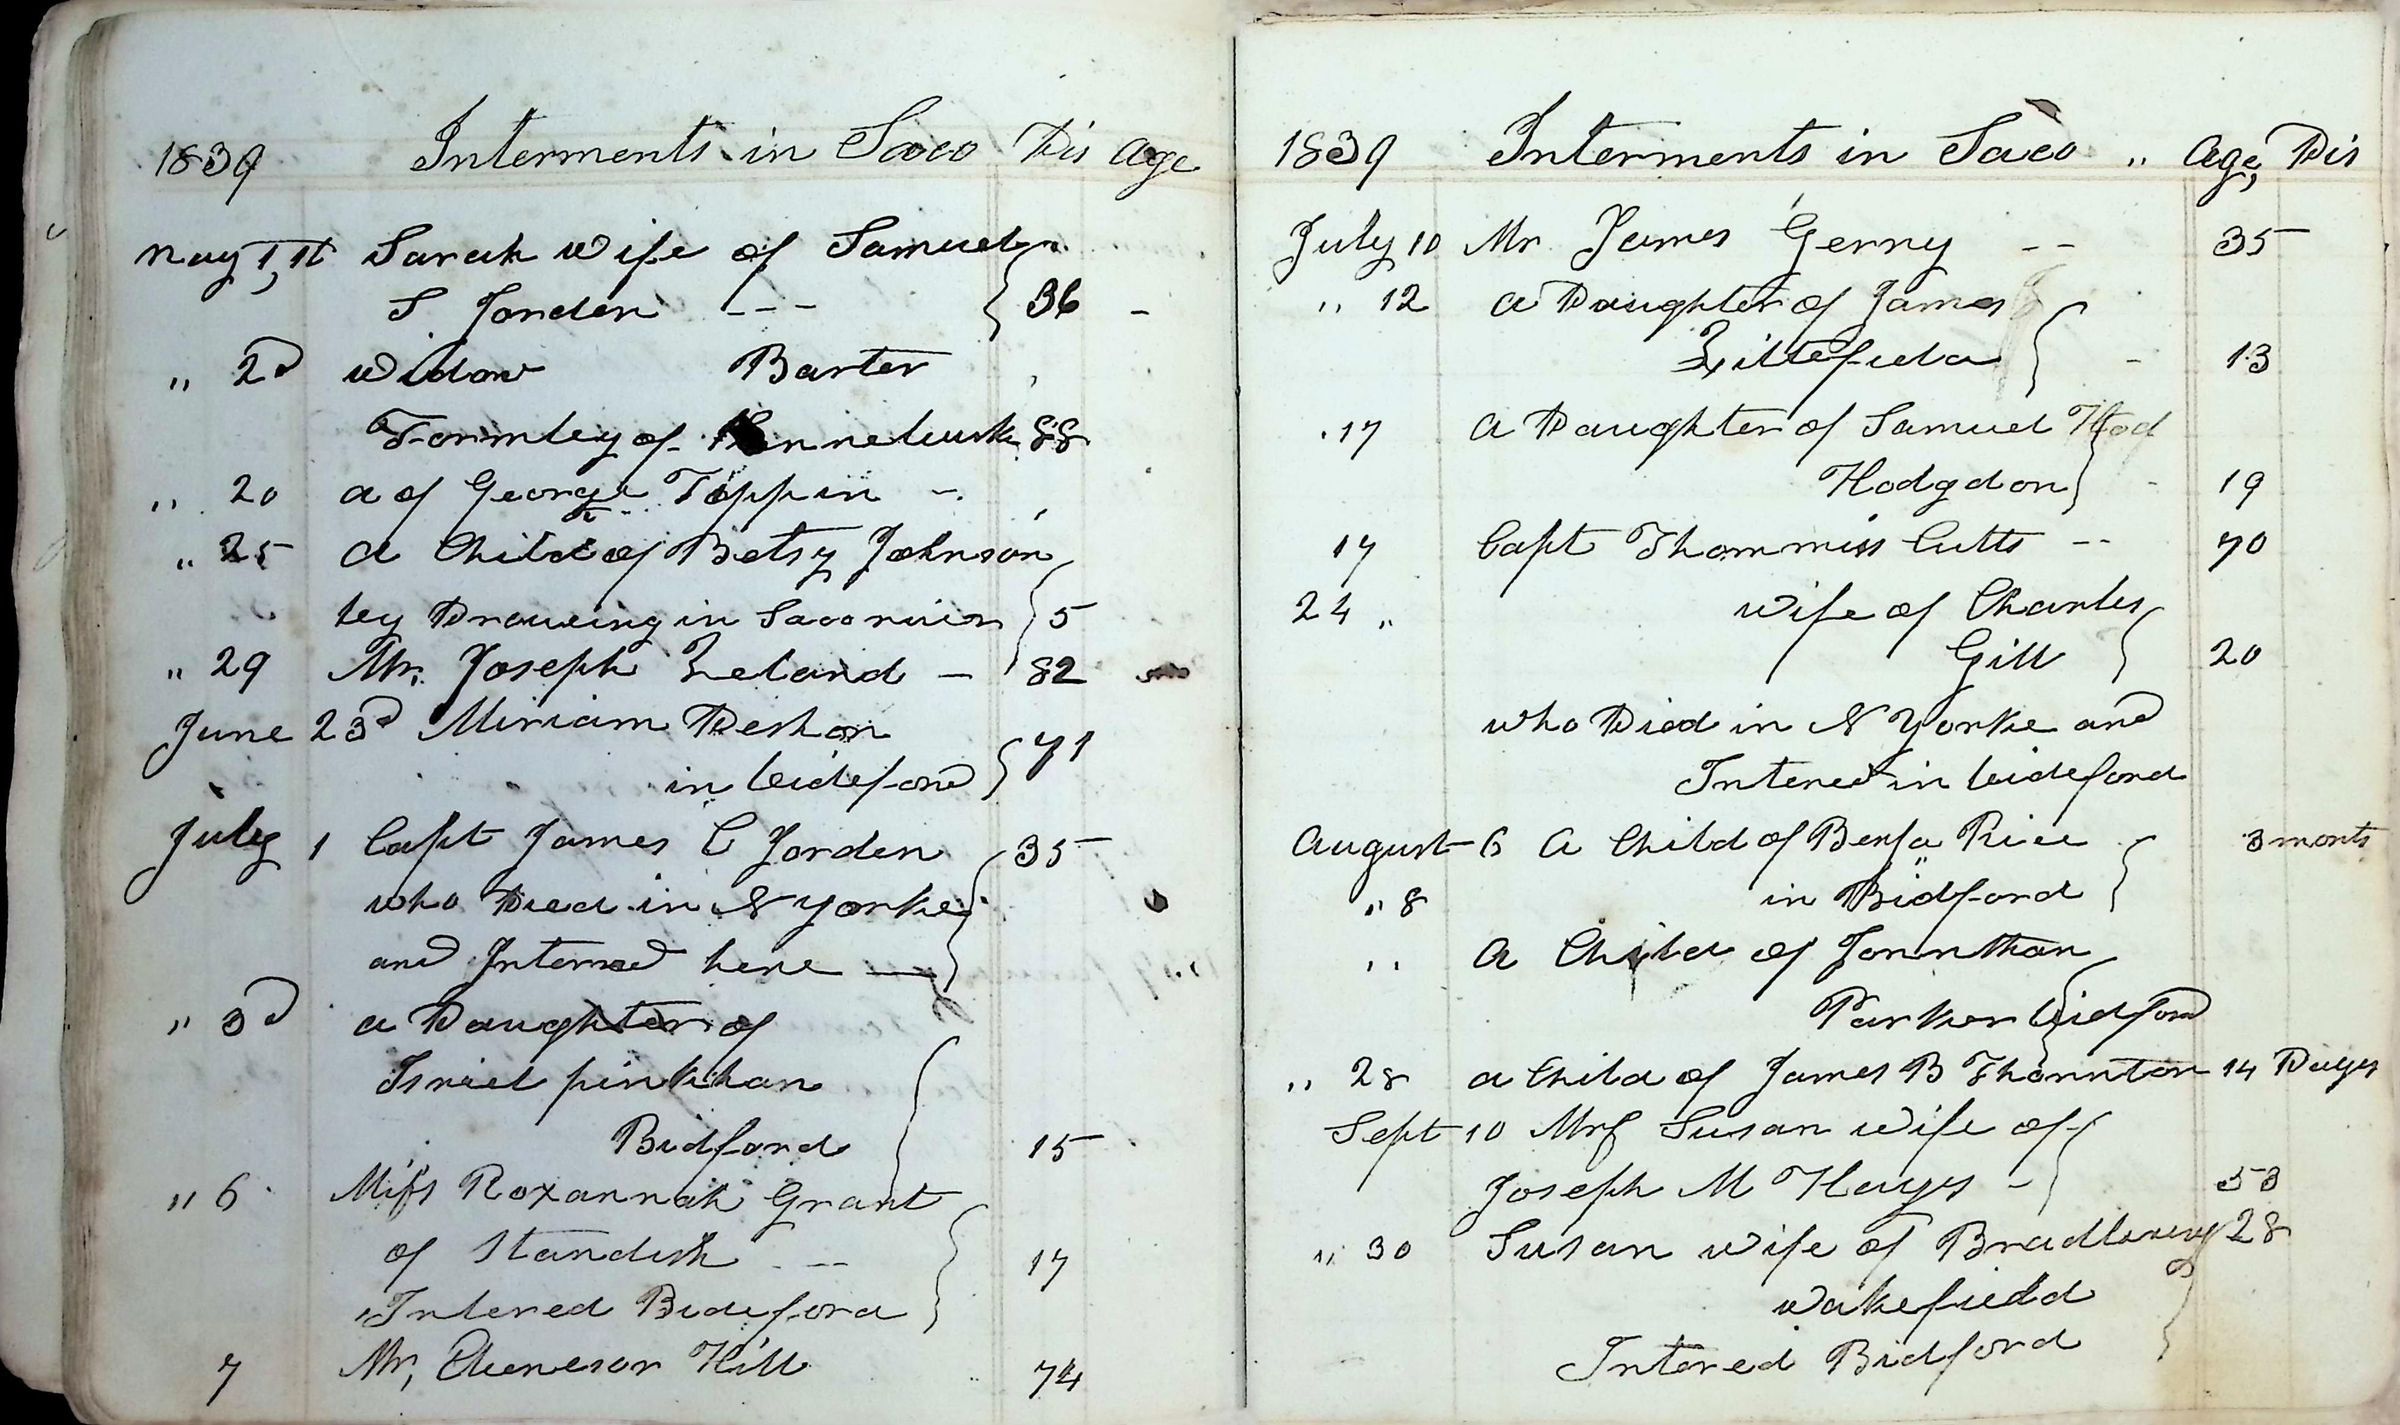 1839 Interments in Saco Dis Age
May 1, 1st Sarah wife of Samuel
S Jorden --- 36 -
" 2d widow Barter
Formley of Kennebunk 88
" 20 a of George Toppin -
" 25 a Child of Betsy Johnson
by Drowning in Saco river 5
" 29 Mr. Joseph Leland - 82
June 23d Miriam Deshon
in bideford 71
July 1 Capt James C Jorden 35
who Died in N Yorke
and Interned here —
" 3d a Daughter of
Isriel pinkhan
Bidford 15
" 6 Miss Roxannah Grant
of Standish -- 17
Intered Bideford
7 Mr, Ebenesor Hill 74
1839 Interments in Saco " Age, Dis
July 10 Mr James Gerry -- 35
" 12 a Daughter of James
Littefield - 13
" 17 a Daughter of Samuel Hod
Hodgdon - 19
17 Capt Thommiss Cutts -- 70
24 " wife of Charles
Gill 20
who Died in N Yorke and
Intered in bideford
August 6 A Child of Benja Rice 3 monts
" 8 in Bidford
" A Child of Jonnthan
Parker bidford
" 28 a Child of James B Thornnton 14 Days
Sept 10 Mrs Susan wife of
Joseph M Hayes - 53
" 30 Susan wife of Bradbury 28
Wakefield
Intered Bidford